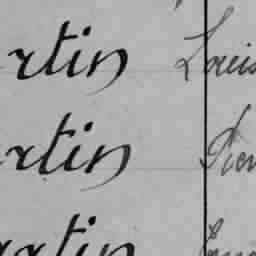 rtin Louis
artin Pierr
artin